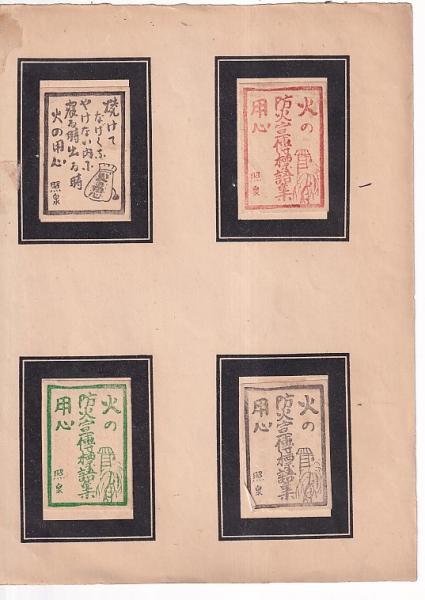 焼けて
なげくな
やけない内に
寝る時出る時
火の用心
照泉
火の
防火宣傳標語集
用心
照泉
火の
防火宣傳標語集
用心
照泉
火の
防火宣傳標語集
用心
照泉